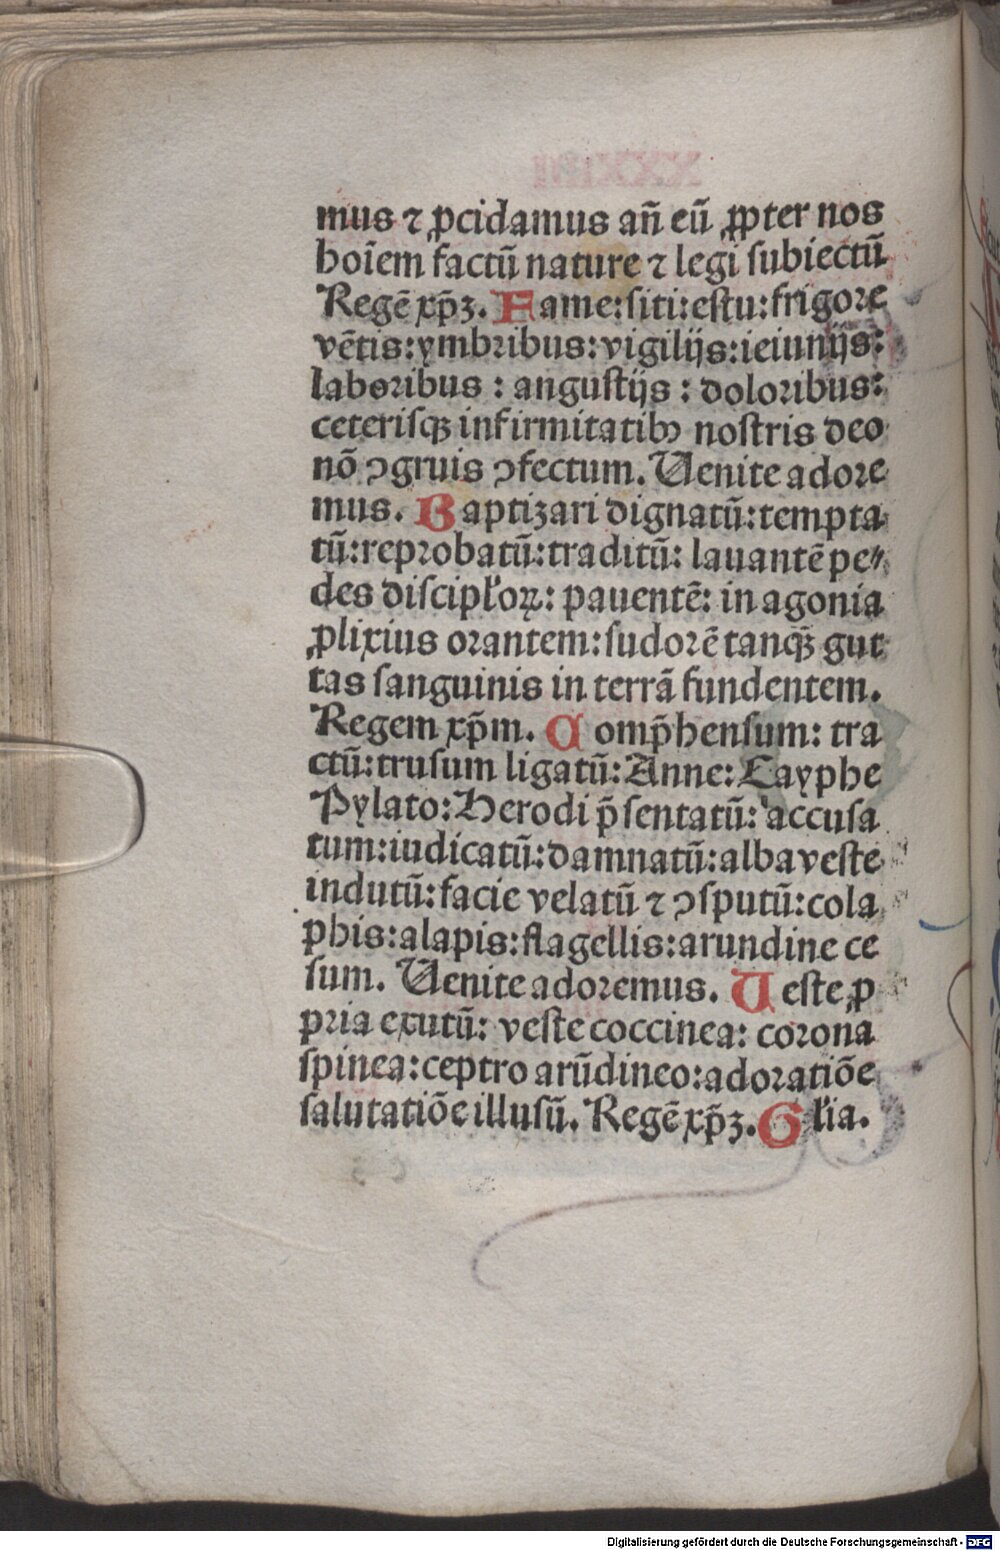 mus ⁊ ꝓcidamus an̄ eū ꝓpter nos
hoīem factū nature ⁊ legi ſubiectū
Regē xp̄ꝫ. Fame:ſiti:eſtu:frigore
vētis:ymbribus:vigilijs:ieiunijs:
laboribus : anguſtijs : doloribus:
ceteriſqꝫ infirmitatibꝰ noſtris deo
nō ꝯgruis ꝯfectum. Uenite adore
mus. Baptizari dignatū:tempta
tū:reprobatū:traditū: lauantē pe⸗
des diſcipl'oꝝ: pauentē: in agonia
ꝓlixius orantem:ſudorē tanqꝫ̄ gut
tas ſanguinis in terrā fundentem.
Regem xp̄m. Comp̄henſum: tra
ctū:truſum ligatū:Anne:Cayphe
Pylato:Herodi p̄ſentatū:accuſa
tum:iudicatū:damnatū:alba veſte
indutū:facie velatū ⁊ ꝯſputū:cola
phis:alapis:flagellis:arundine ce
ſum. Uenite adoremus. Ueſte ꝓ
pria exutū: veſte coccinea: corona
ſpinea:ceptro arūdineo:adoratiōe
ſalutatiōe illuſū. Regē xp̄ꝫ. Gl'ia.
Digitalisierung gefördert durch die Deutsche Forschungsgemeinschaft - DFG